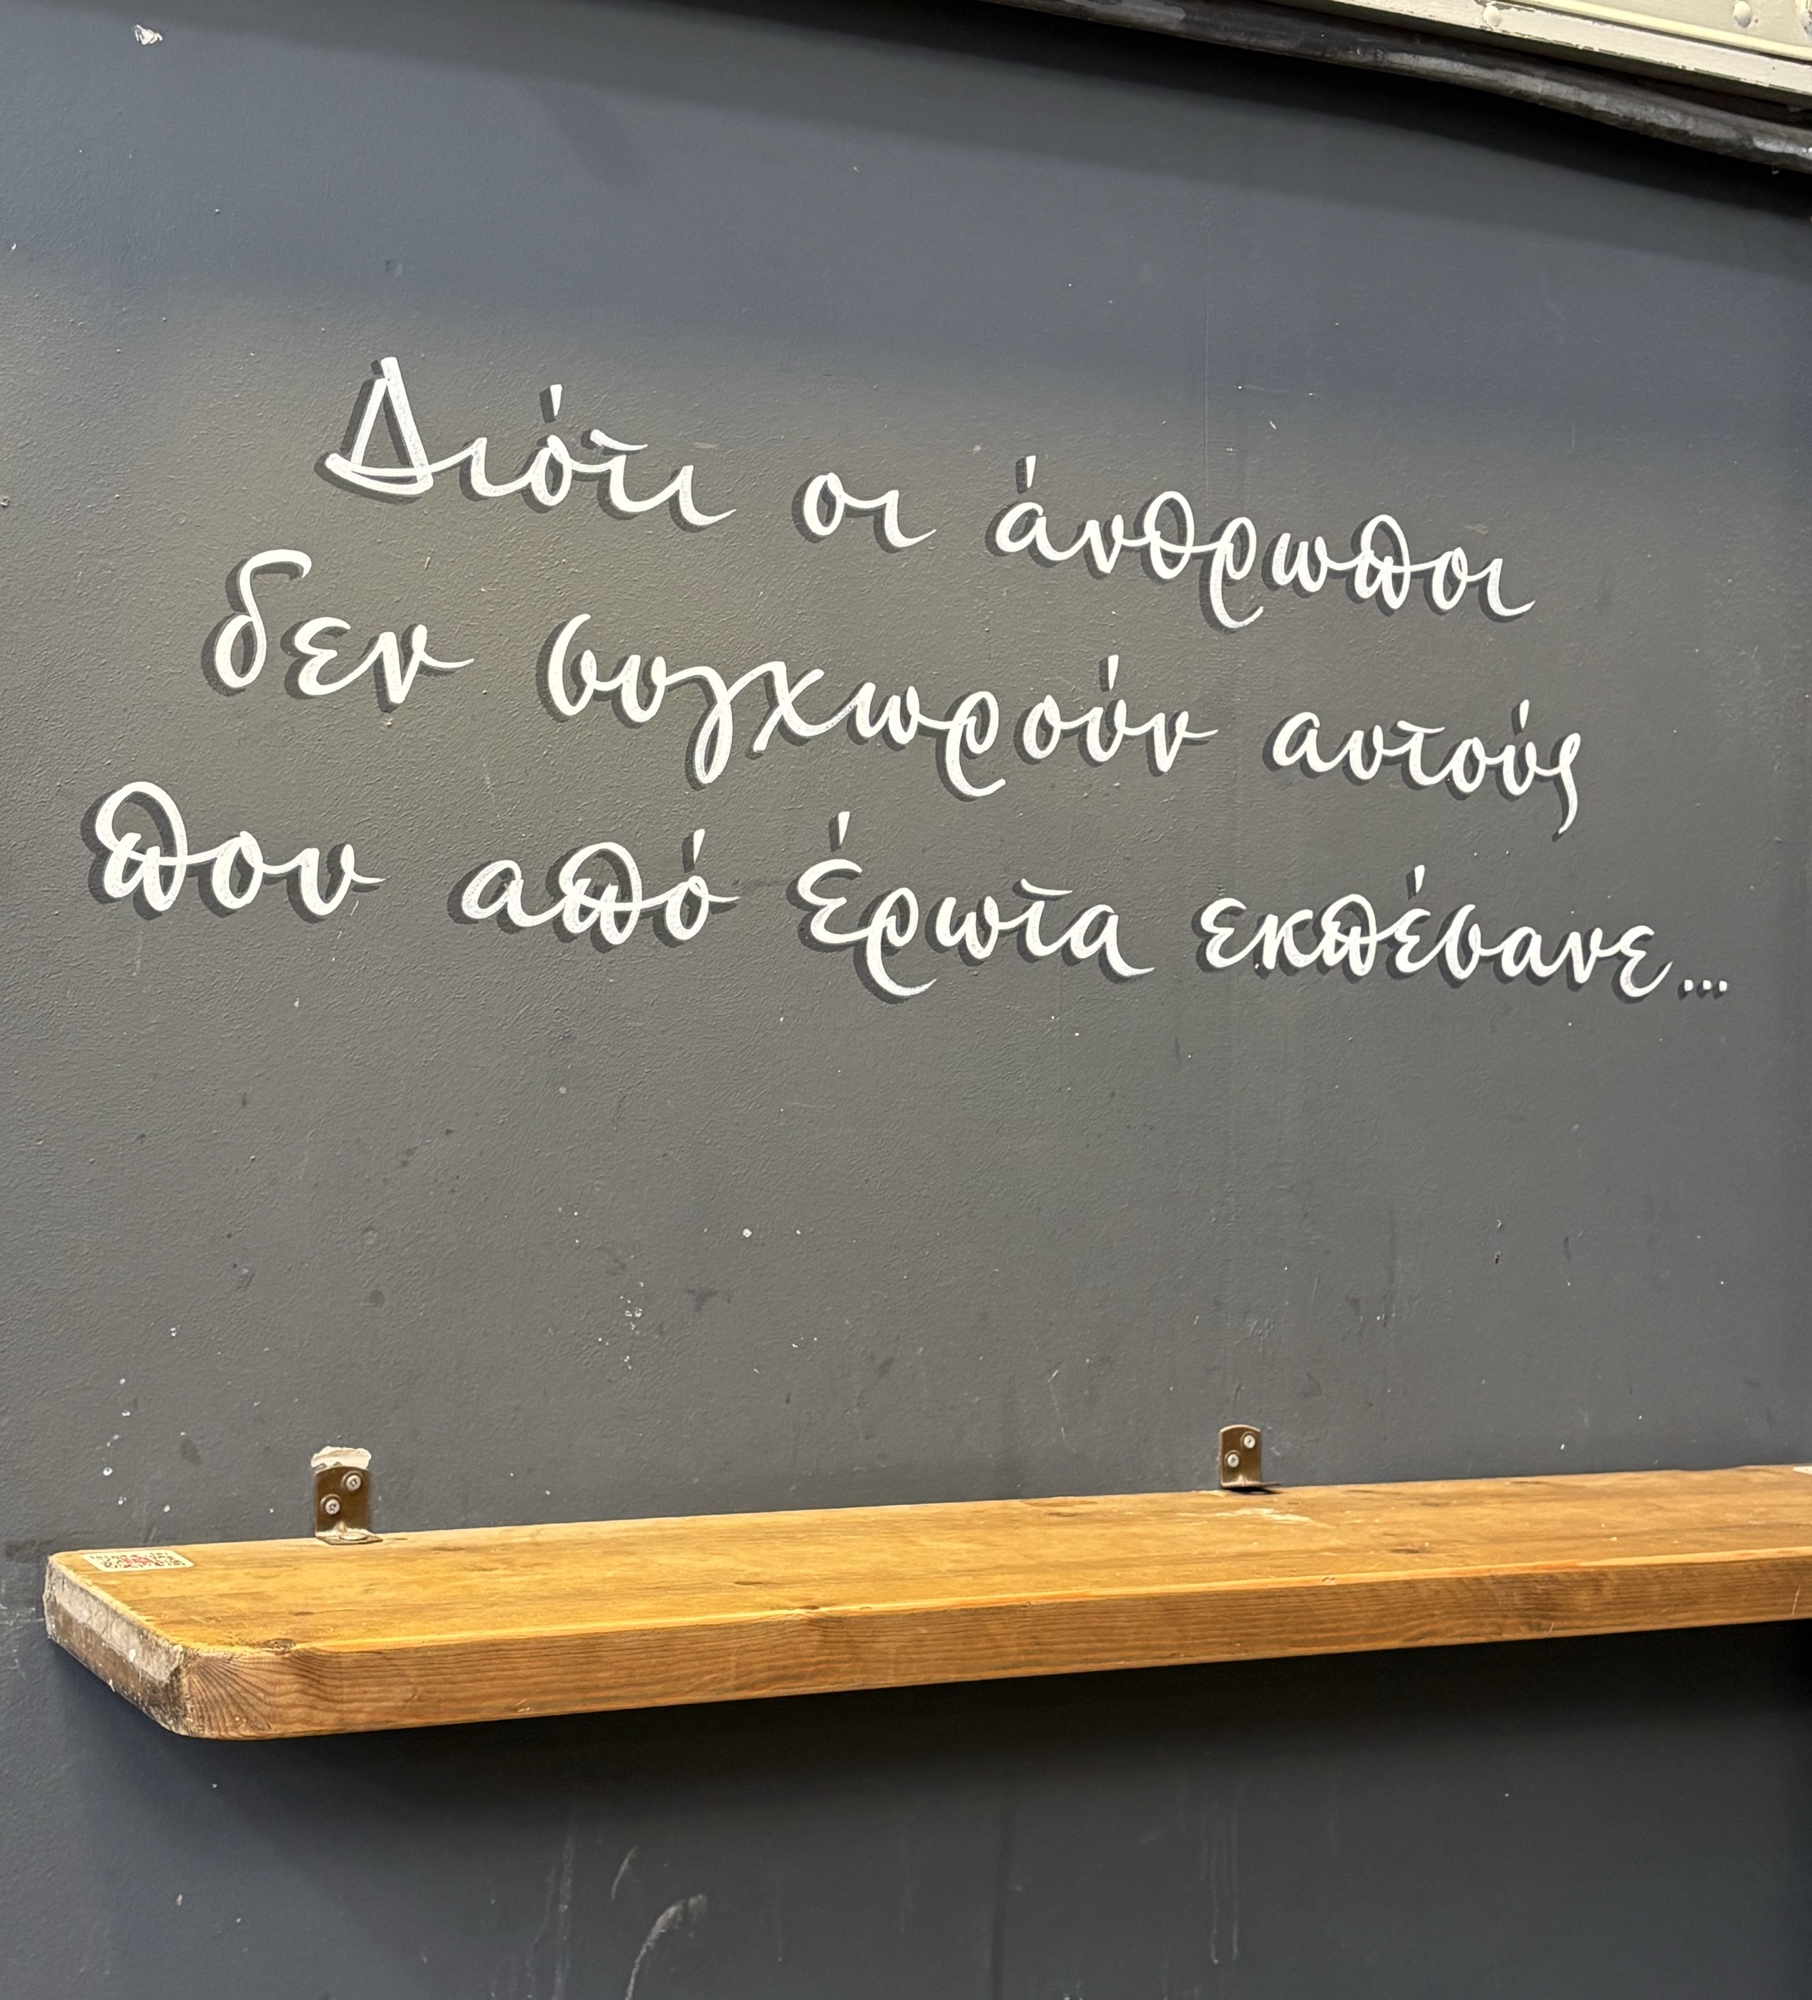 Διότι οι άνθρωποι
δεν συγχωρούν αυτούς
που από έρωτα εκπέσανε...